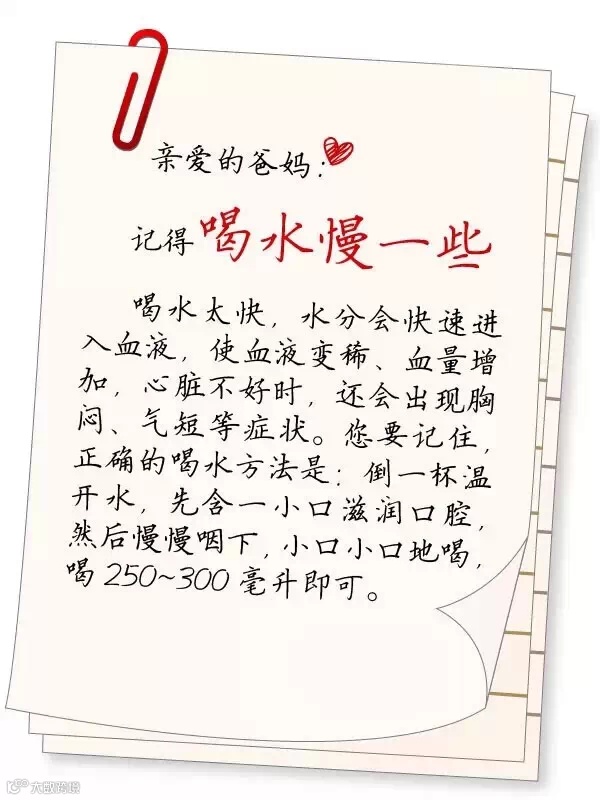 亲爱的爸妈：
记得喝水慢一些
喝水太快，水分会快速进
入血液，使血液变稀、血量增
加，心脏不好时，还会出现胸
闷、气短等症状。您要记住，
正确的喝水方法是：倒一杯温
开水，先含一小口滋润口腔，
然后慢慢咽下，小口小口地喝，
喝250~300毫升即可。
大数跨境